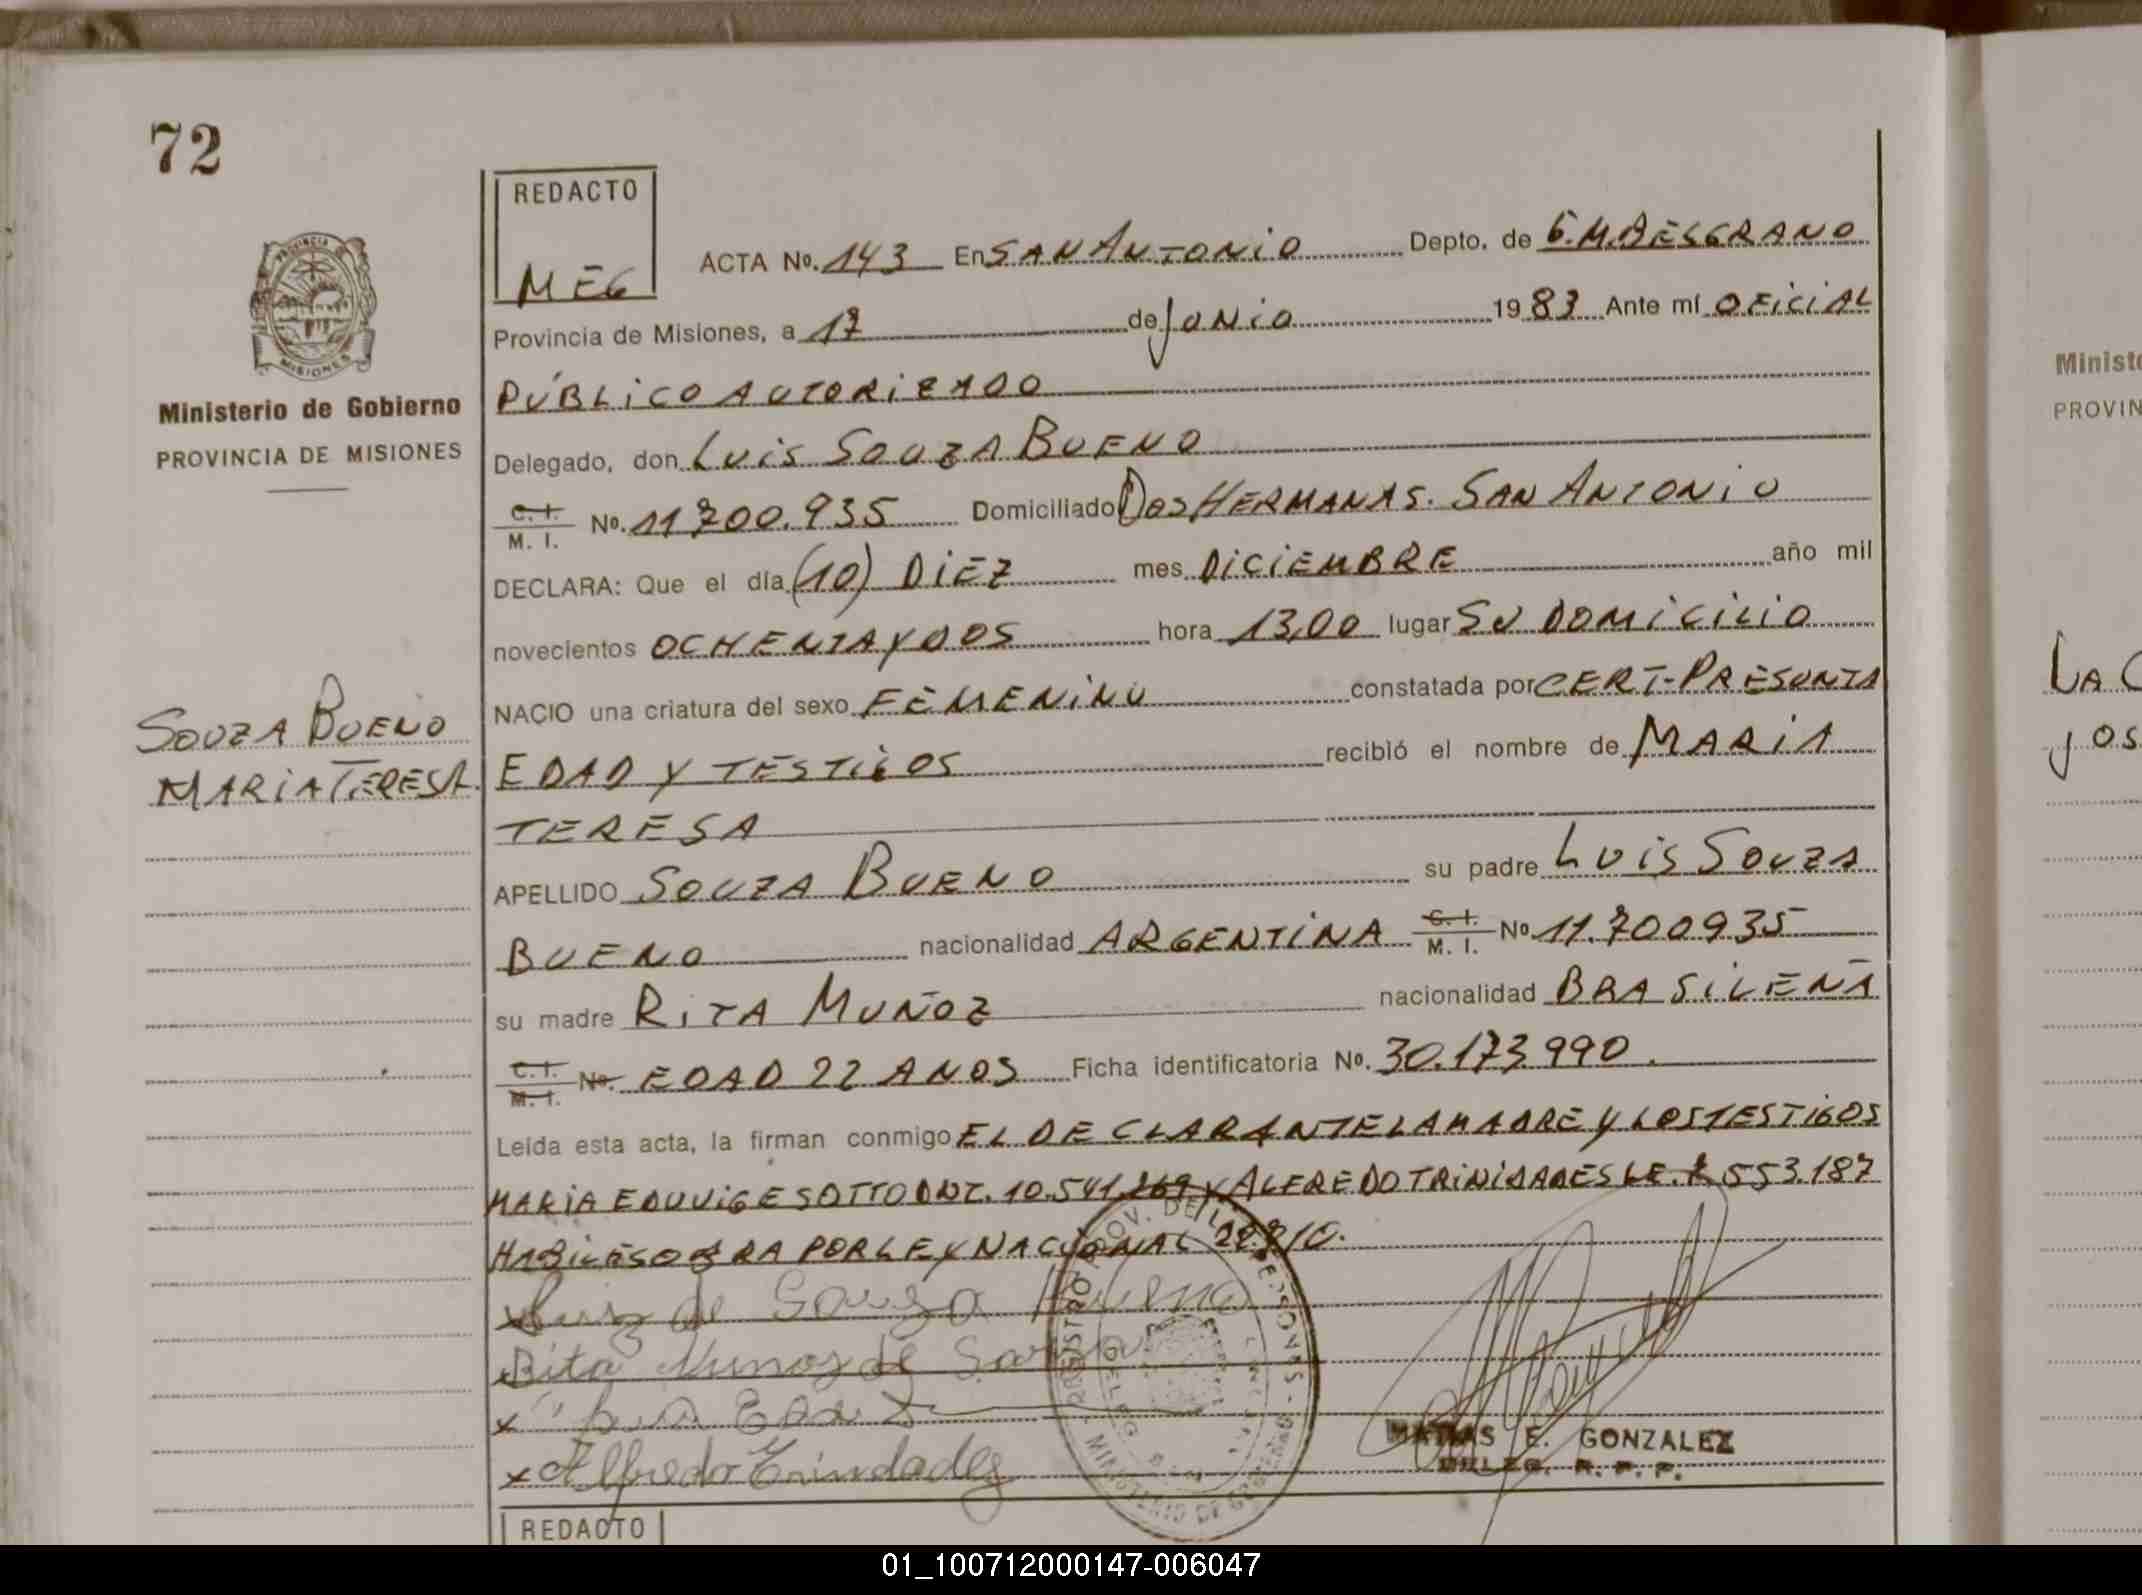 72
REDACTO
MEG
ACTA Nº. 143 En SAN ANTONIO Depto. de G.M.BELGRANO
PROVINCIA
MISIONES
Provincia de Misiones, a 17 de JUNIO 1983 Ante mí OFICIAL
Ministerio de Gobierno
PROVINCIA DE MISIONES
PÚBLICO AUTORIZADO
Delegado, don LUIS SOUZA BUENO
C. I.
M. I. Nº. 11700.935 Domiciliado DOS HERMANAS. SAN ANTONIO
DECLARA: Que el día (10) DIEZ mes DICIEMBRE año mil
novecientos OCHENTA Y DOS hora 13,00 lugar SU DOMICILIO
NACIO una criatura del sexo FEMENINO constatada por CERT-PRESUNTA
SOUZA BUENO
MARIA TERESA.
EDAD Y TESTIGOS recibió el nombre de MARIA
TERESA
APELLIDO SOUZA BUENO su padre LUIS SOUZA
BUENO nacionalidad ARGENTINA C. I.
M. I. Nº 11.700935
su madre RITA MUÑOZ nacionalidad BRASILEÑA
C. I.
M. I. Nº. EDAD 22 AÑOS Ficha identificatoria Nº. 30.173.990.
Leída esta acta, la firman conmigo EL DECLARANTE LA MADRE Y LOS TESTIGOS
MARIA EDUVIGE SOTTO DNI. 10.541.269 Y ALFREDO TRINIDADES LE. 553.187
HABILES OBRA POR LEY NACIONAL
x Luiz de Souza Bueno
Rita Munoz de Souza
x
x Alfredo Trindades
MATIAS E. GONZALEZ
DELEG. R. P. P.
REDACTO
Ministe
PROVIN
LA C
JOS
01_100712000147-006047